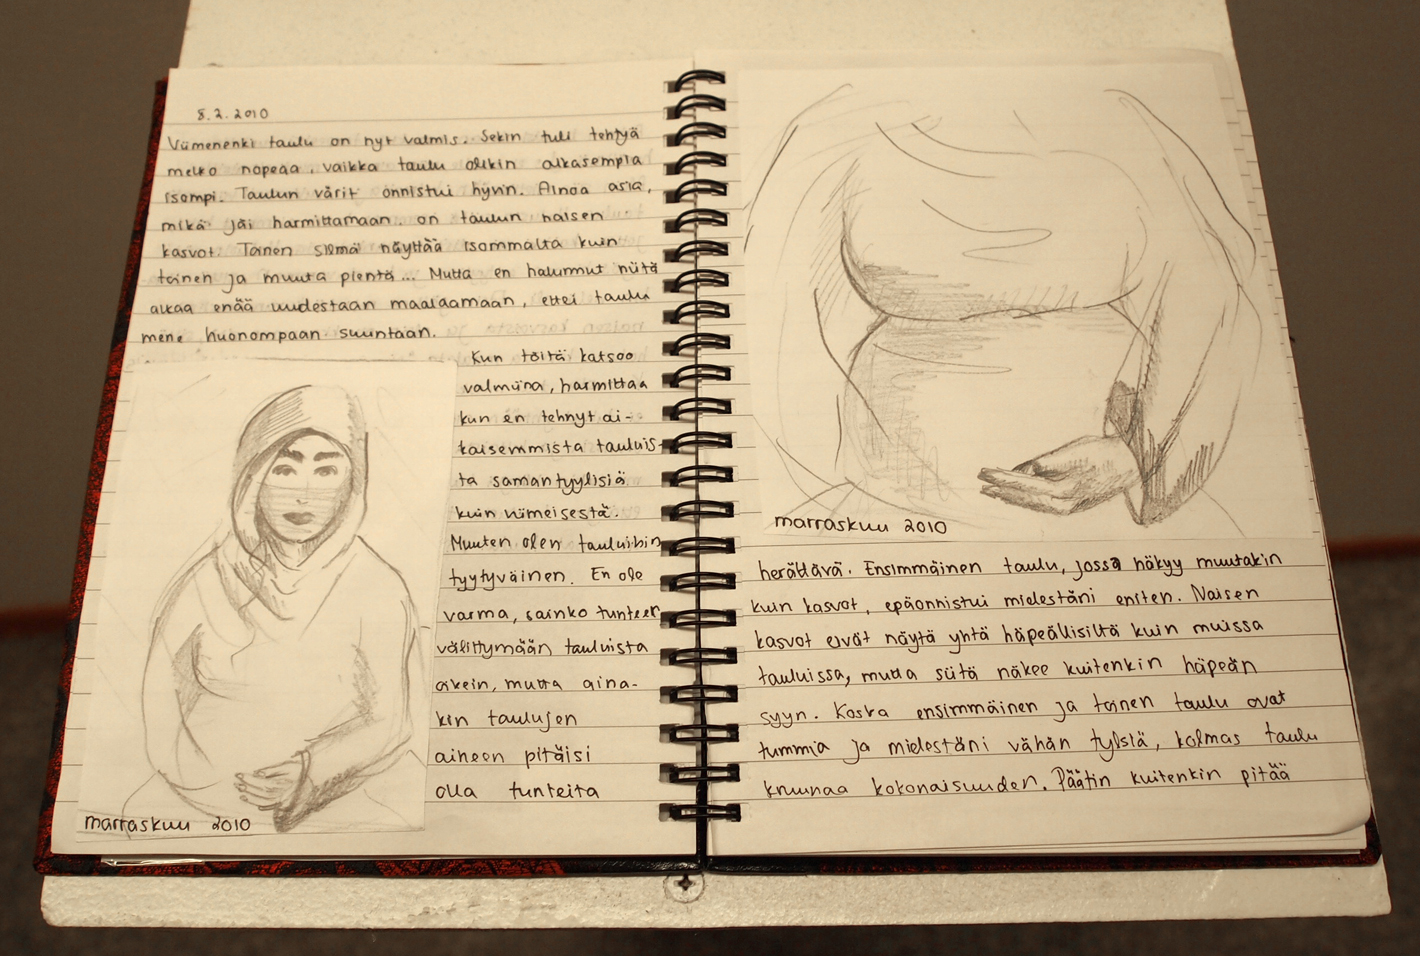 8.2.2010
Viimenenki taulu on nyt valmis. Sekin tuli tehtyä
melko nopeaa, vaikka taulu olikin aikasempia
isompi. Taulun värit onnistui hyvin. Ainoa asia,
mikä jäi harmittamaan on taulun naisen
kasvot. Toinen silmä näyttää isommalta kuin
toinen ja muuta pientä... Mutta en halunnut niitä
alkaa enää uudestaan maalaamaan, ettei taulu
mene huonompaan suuntaan.
Kun töitä katsoo
valmiina, harmittaa
kun en tehnyt ai-
kaisemmista tauluis-
ta samantyylisiä
kuin viimeisestä.
Muuten olen tauluihin
tyytyväinen. En ole
varma, sainko tunteen
välittymään tauluista
oikein, mutta aina-
kin taulujen
aiheen pitäisi
olla tunteita
marraskuu 2010
marraskuu 2010
herättävä. Ensimmäinen taulu, jossa näkyy muutakin
kuin kasvot, epäonnistui mielestäni eniten. Naisen
kasvot eivät näytä yhtä häpeällisiltä kuin muissa
tauluissa, mutta siitä näkee kuitenkin häpeän
syyn. Koska ensimmäinen ja toinen taulu ovat
tummia ja mielestäni vähän tylsiä, kolmas taulu
kruunaa kokonaisuuden. Päätin kuitenkin pitää